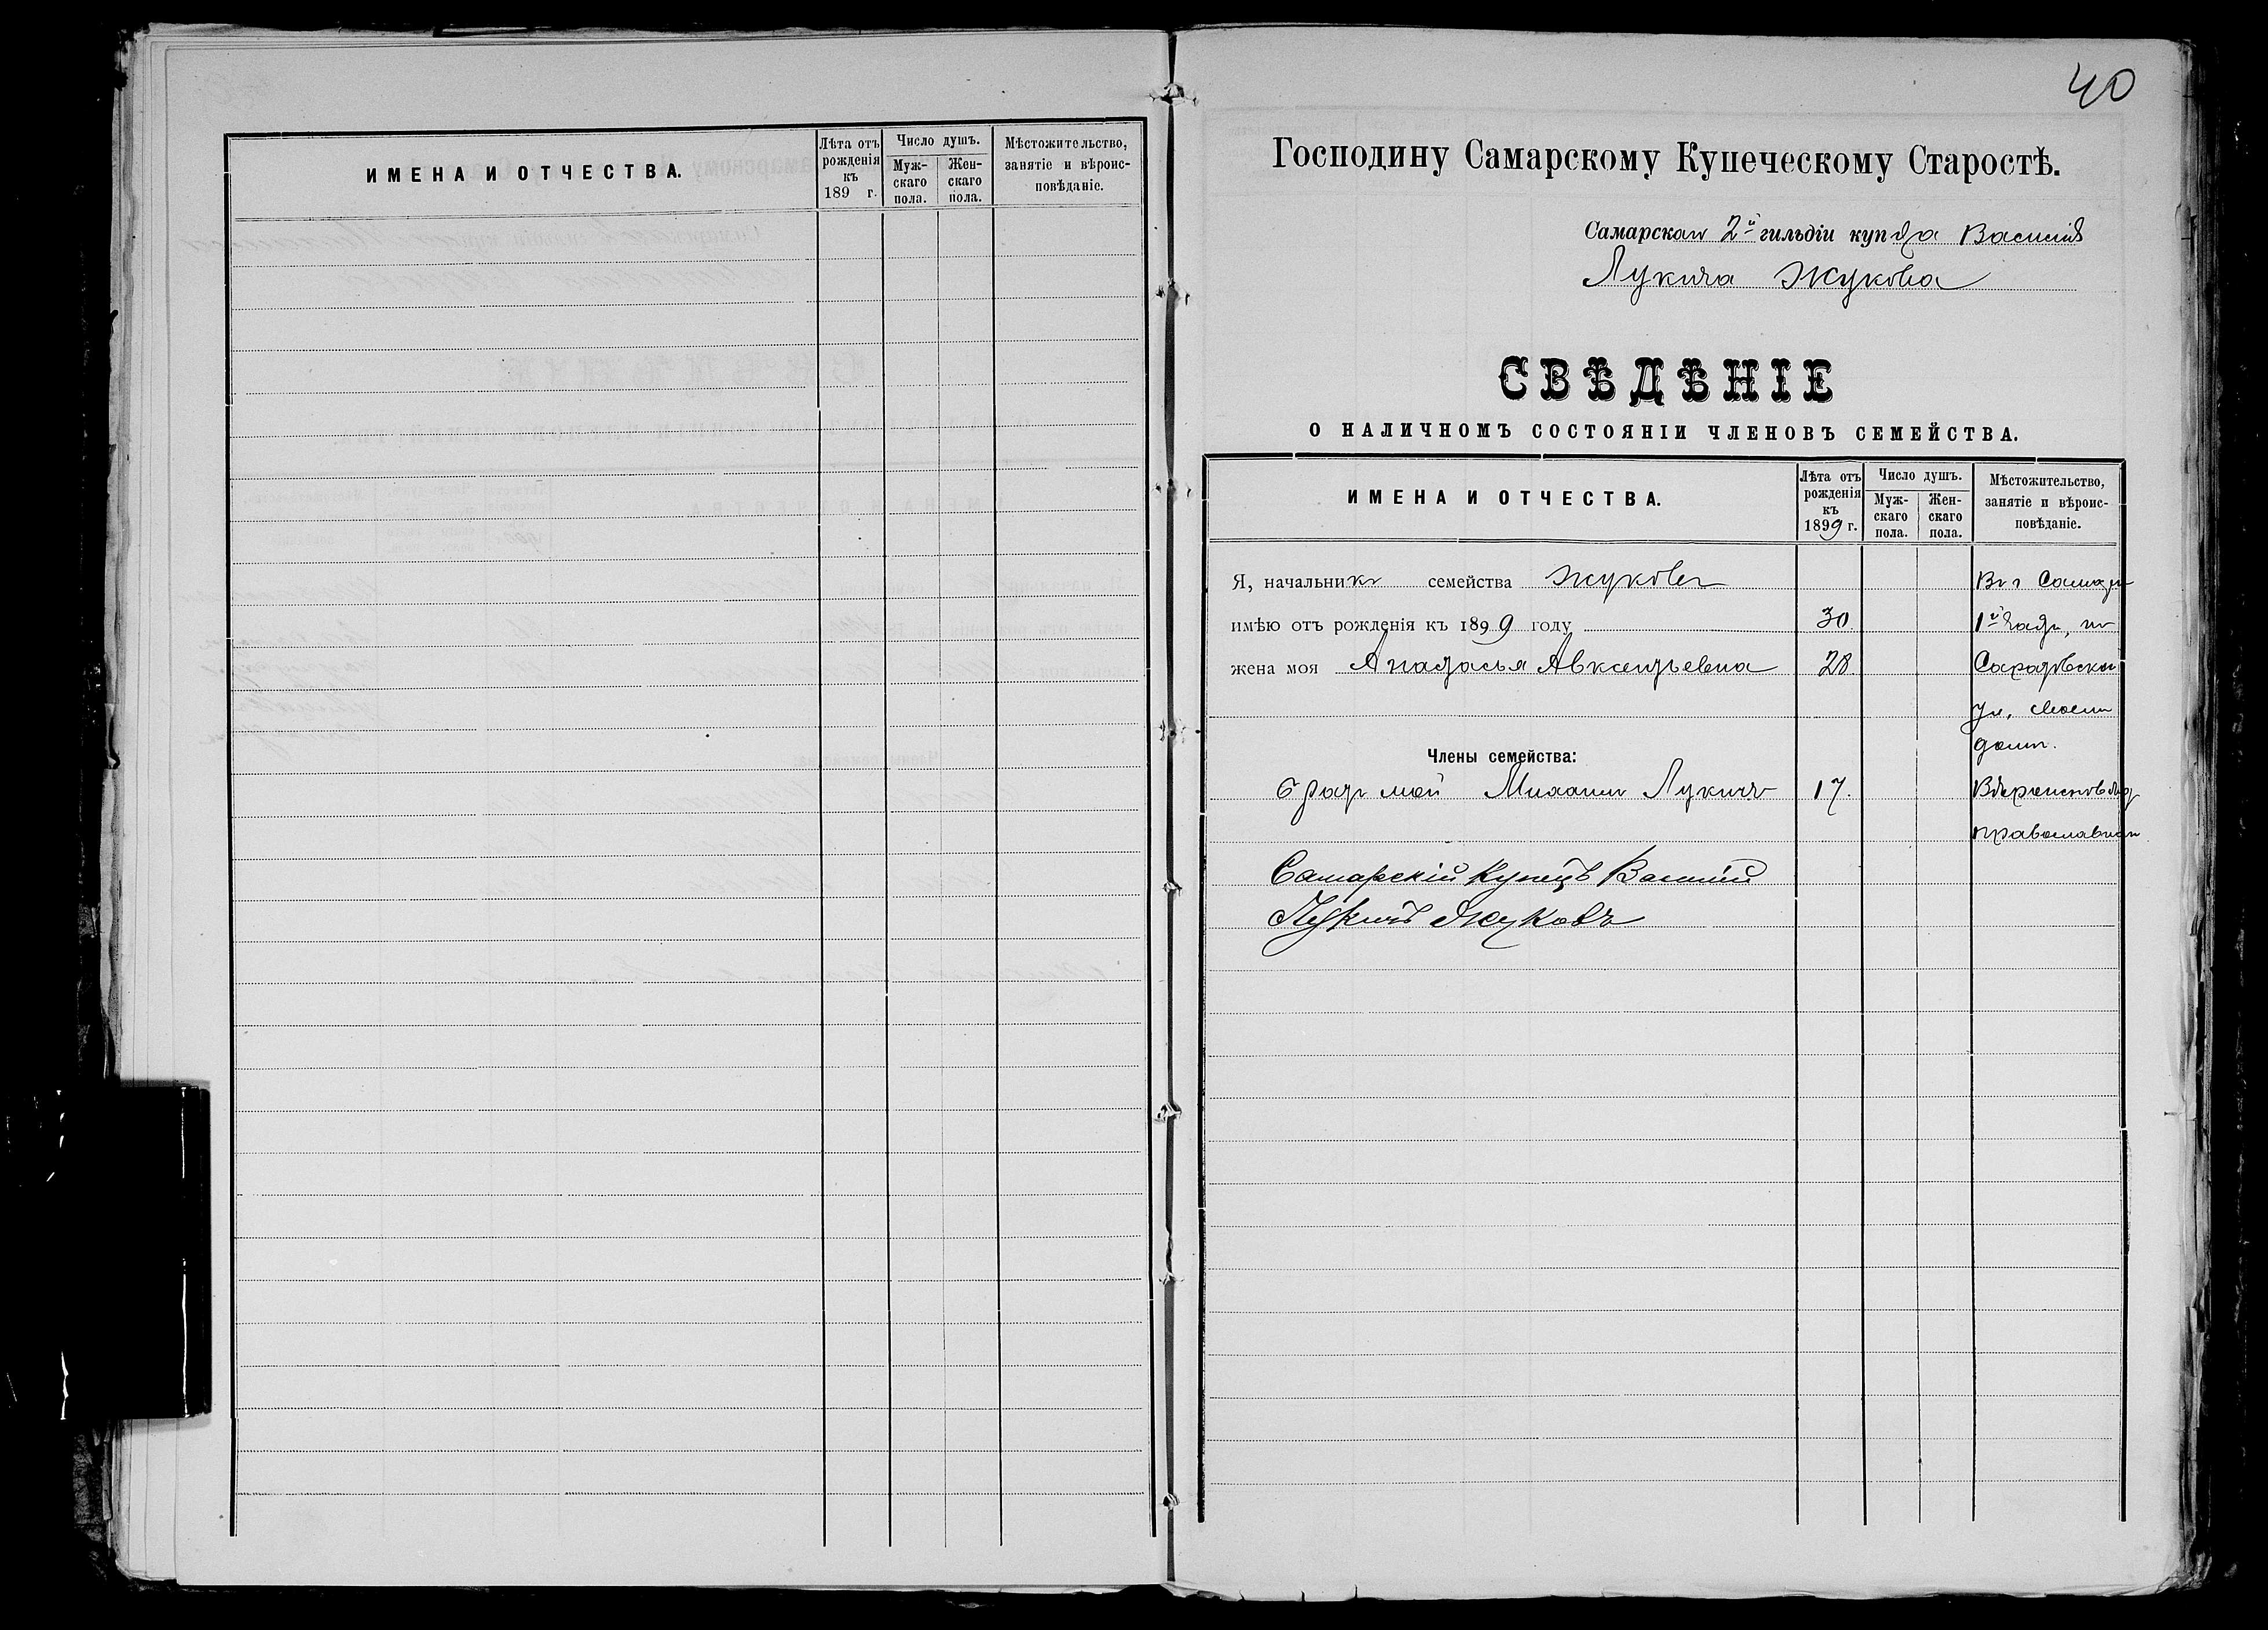 ИМЕНА И ОТЧЕСТВА.
Лѣта отъ рожденія къ 189 г.
Число душъ.
Мужскаго пола.
Женскаго пола.
Мѣстожительство, занятіе и вѣроисповѣданіе.
40
Господину Самарскому Купеческому Старостѣ.
Самарскаго 2й гильдіи купца Василія
Лукича Жукова
СВѢДѢНІЕ
О НАЛИЧНОМЪ СОСТОЯНІИ ЧЛЕНОВЪ СЕМЕЙСТВА.
ИМЕНА И ОТЧЕСТВА.
Лѣта отъ рожденія къ 1899 г.
Число душъ.
Муж-скаго пола.
Жен-скаго пола.
Мѣстожительство, занятіе и вѣроис-повѣданіе.
Я, начальникъ семейства Жуковъ Въ г Самарѣ
имѣю отъ рожденія къ 1899 году 30. 1й части, по
жена моя Анастасья Авксентьевна 28. Саратовской
ул., свой
домъ.
Члены семейства:
братъ мой Михаилъ Лукичъ 17. Вѣроисповѣд
православнаго
Самарскій Купецъ Василій
Лукичъ Жуковъ